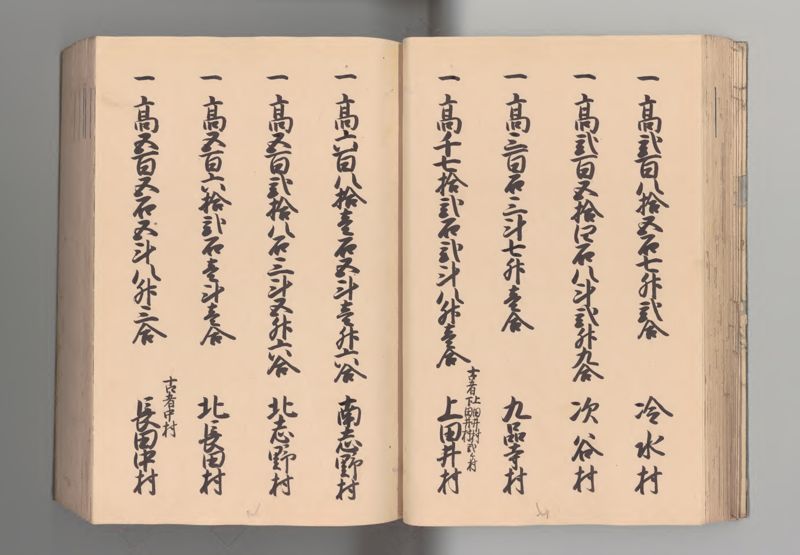 一 高弐百八拾五石七升弐合 冷水村
一 高弐百五拾四石八斗弐升九合 次谷村
一 高三百石三斗七升壱合 九品寺村
一 高千七拾弐石弐斗八升壱合 上田井村
古者上田井村下田井村弐ヶ村
一 高六百八拾壱石五斗壱升六合 南志野村
一 高五百弐拾八石三斗五升六合 北志野村
一 高五百六拾弐石壱斗壱合 北長田村
一 高五百五石五斗八升三合 長田中村
古者中村